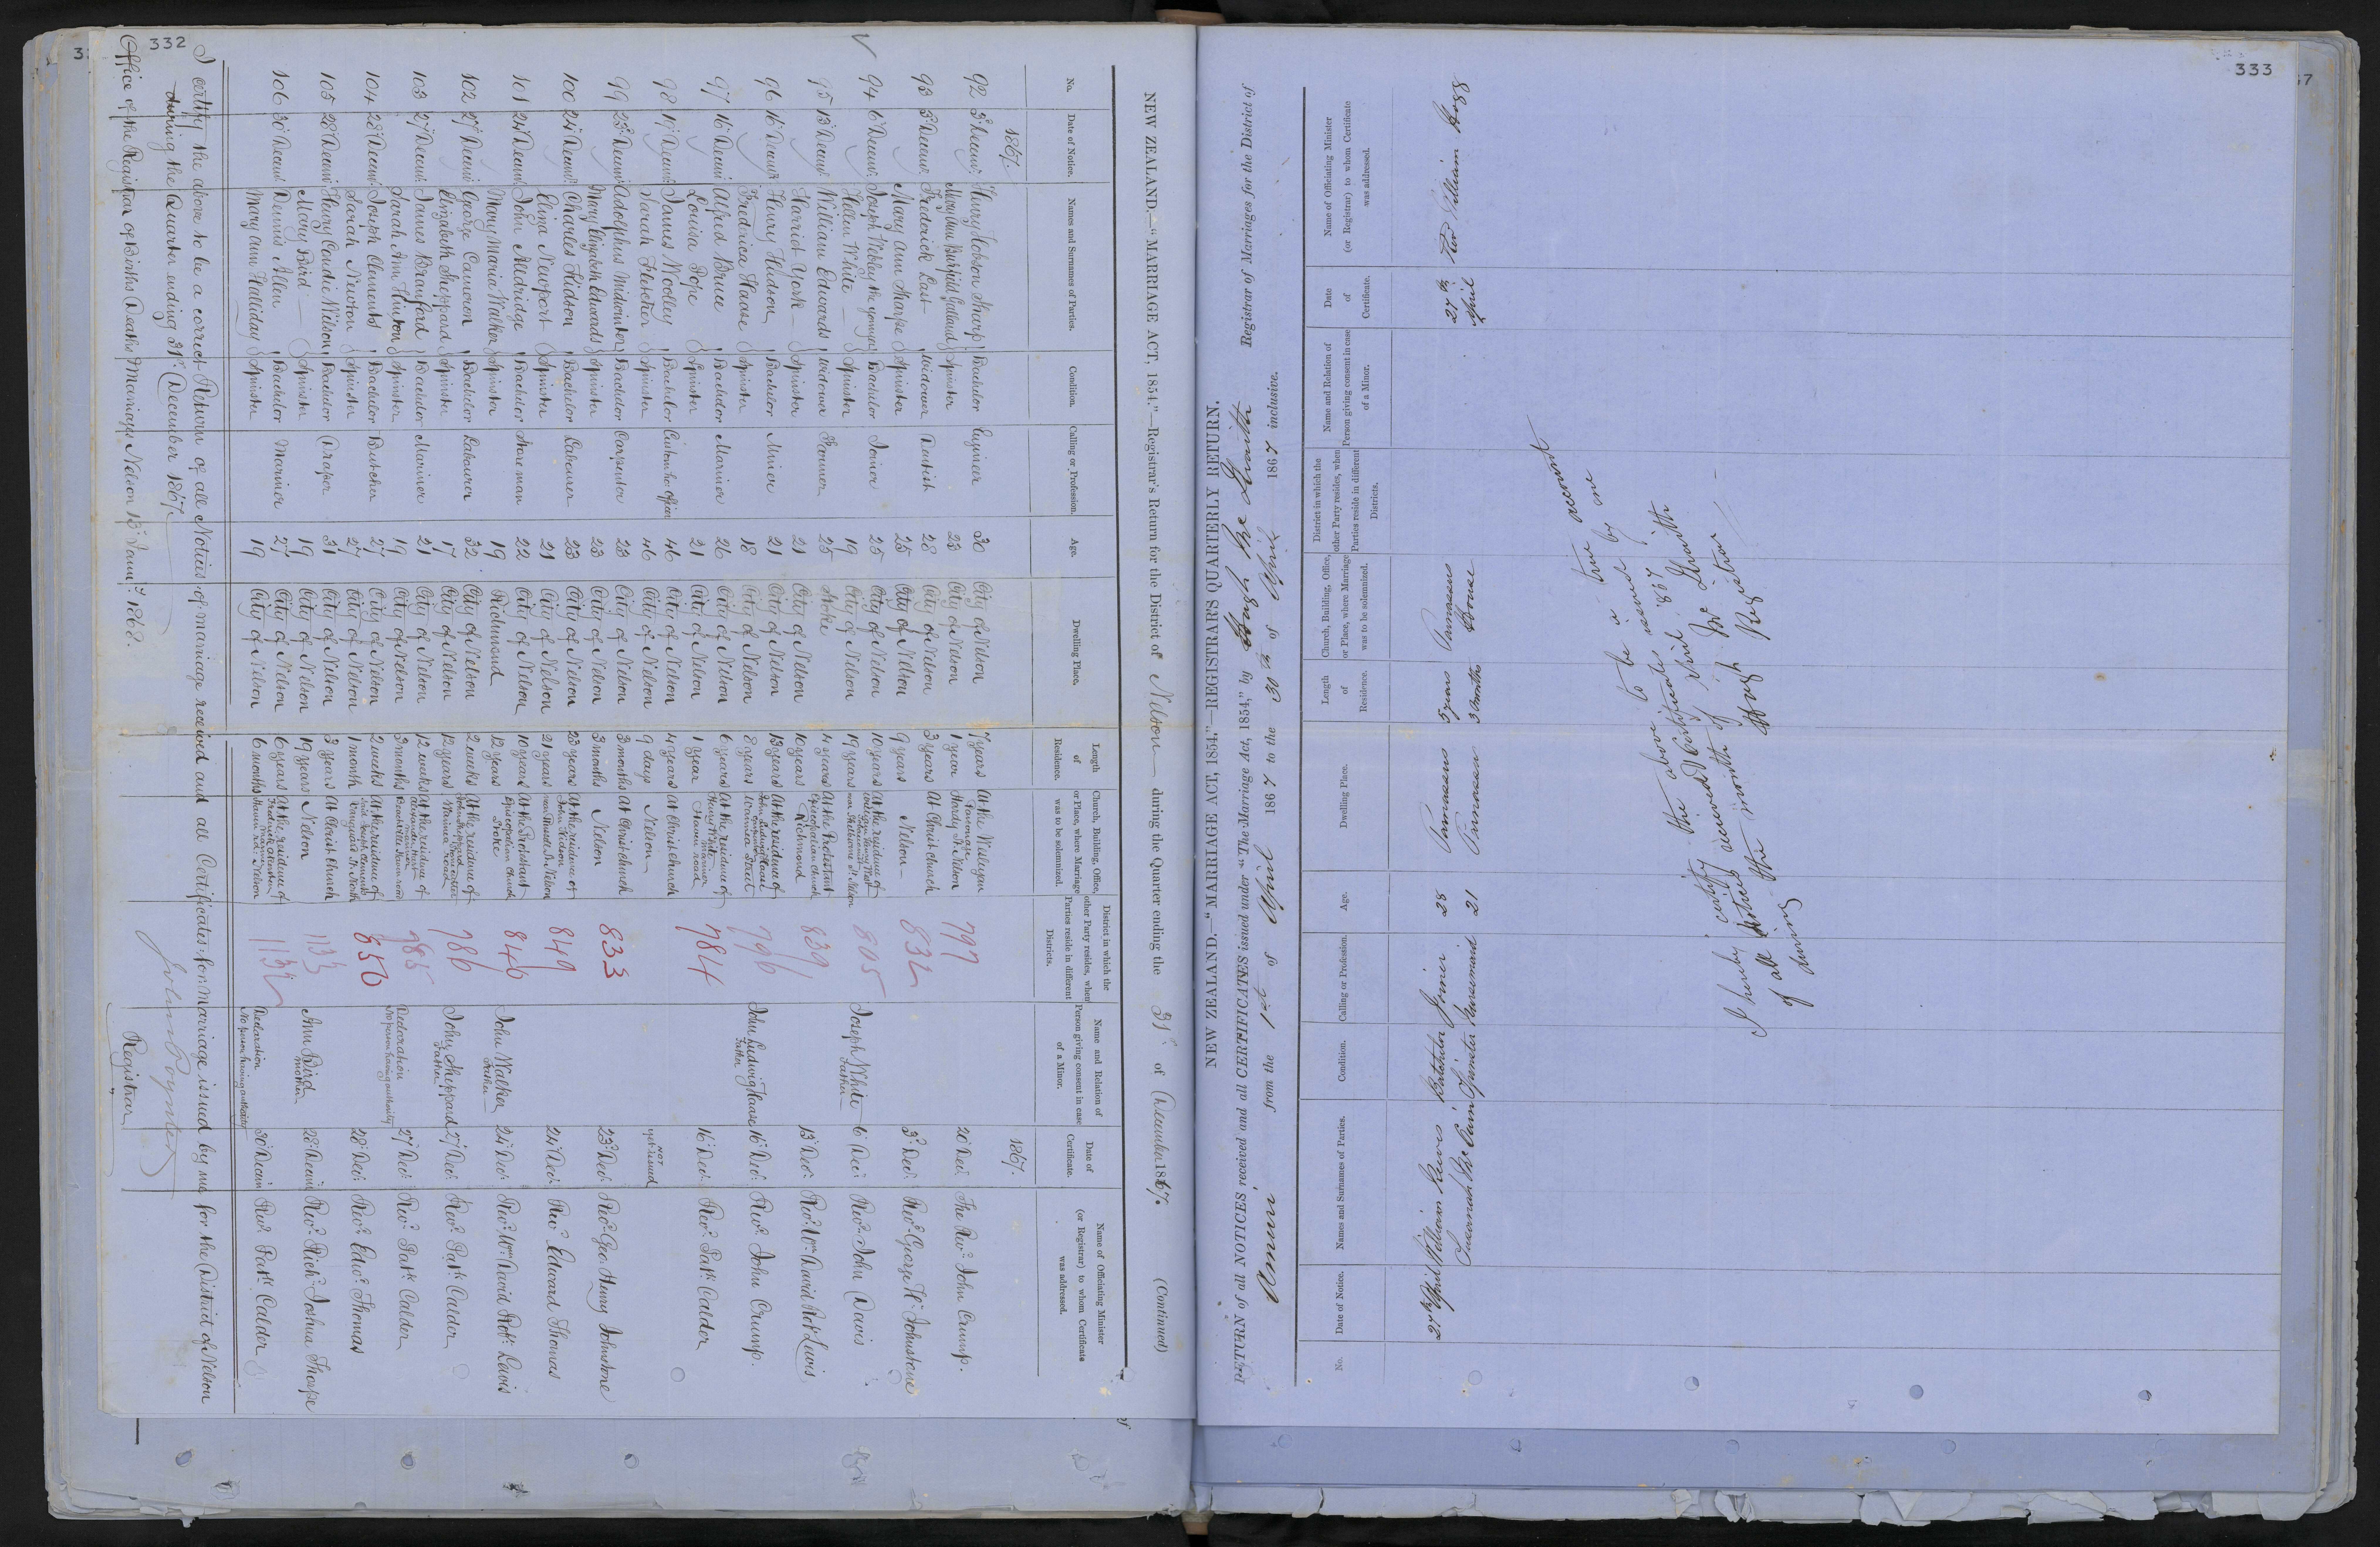 332
NEW ZEALAND.—"MARRIAGE ACT, 1854."—Registrar's Return for the District of Nelson during the Quarter ending the 31st of December 1867. (Continued)
No. Date of Notice. Names and Surnames of Parties. Condition. Calling or Profession. Age. Dwelling Place. Length of Residence. Church, Building, Office, or Place, where Marriage was to be solemnized. District in which the other Party resides, when Parties reside in different Districts. Name and Relation of Person giving consent in case of a Minor. Date of Certificate. Name of Officiating Minister (or Registrar) to whom Certificate was addressed.
1867. 1867.
92 3d Decemr. Henry Hobson Sharp Bachelor Engineer 30 City of Nelson 7 years At the Wesleyan 797 20 Decr. The Revd. John Crump.
Mary Ann Spinster 23 City of Nelson 1 year Parsonage Hardy St. Nelson
93 3d Decemr. Frederick Last Widower 28 City of Nelson 3 years At Christ church 832 3d Decr. Revd. George Hy. Johnstone
Mary Ann Sharpe Spinster 25 City of Nelson 9 years Nelson
94 6 Decemr. Joseph Webley the younger Bachelor Joiner 25 City of Nelson 10 years At the residence of 805 Joseph White Father 6 Decr. Revd. John Davis
Helen White Spinster 19 City of Nelson 19 years
95 13 Decemr. William Edwards Widower 25 Stoke 4 years At the Protestant Episcopalian church 839 13 Decr. Revd. Wm. David Robt. Lewis
Harriet York Spinster 21 City of Nelson 10 years Richmond
96 16 Decemr. Henry Hudson Bachelor Miner 21 City of Nelson 13 years At the residence of 796 John Ludwig Haase Father 16 Decr. Revd. John Crump.
Fredrica Haase Spinster 18 City of Nelson 8 years
97 16 Decemr. Alfred Bruce Bachelor Mariner 26 City of Nelson 6 years At the residence of 784 16 Decr. Revd. Patk. Calder
Louisa Pope Spinster 21 City of Nelson 1 year Haven road
98 19 Decemr. James Wolley Bachelor Custom ho. officer 46 City of Nelson 4 years At Christ church not yet issued
Sarah Fletcher Spinster 46 City of Nelson 9 days Nelson
99 23d Decemr. Adolphus Midwinter Bachelor Carpenter 23 City of Nelson 3 months At Christ church 833 23d Decr. Revd. Geo. Henry Johnstone
Mary Elizabeth Edwards Spinster 23 City of Nelson 3 months Nelson
100 24 Decemr. Charles Kidson Bachelor Labourer 23 City of Nelson 23 years At the residence of John Kidson 849 24 Decr. Revd. Edward Thomas
Eliza Newport Spinster 21 City of Nelson 21 years
101 24 Decemr. John Alldridge Bachelor Storeman 22 City of Nelson 10 years At the Protestant Episcopalian Church 846 John Walker Father 24 Decr. Revd. Wm. David Robt. Lewis
Mary Maria Walker Spinster 19 Richmond 12 years Stoke
102 27 Decemr. George Cameron Bachelor Labourer 32 City of Nelson 2 weeks At the residence of John Sheppard 786 John Sheppard Father 27 Decr. Revd. Patk. Calder
Elizabeth Sheppard Spinster 17 City of Nelson 12 years
103 27 Decemr. James Branford Bachelor Mariner 21 City of Nelson 12 weeks At the residence of 785 Declaration 27 Decr. Revd. Patk. Calder
Sarah Ann Hinton Spinster 19 City of Nelson 3 months No person having authority
104 28 Decemr. Joseph Clements Bachelor Butcher 27 City of Nelson 2 weeks At the residence of 850 28 Decr. Revd. Edwd. Thomas
Sarah Newton Spinster 27 City of Nelson 1 month
105 28 Decemr. Henry Coadie Nilson Bachelor Draper 31 City of Nelson 3 years At Christ church 1133 Ann Bird Mother 28 Decemr. Revd. Richd. Joshua Thorpe
Mary Bird Spinster 19 City of Nelson 19 years Nelson
106 30 Decemr. Dennis Allen Bachelor Mariner 27 City of Nelson 6 years At the residence of 1132 Declaration 30 Decemr. Revd. Patk. Calder
Mary Ann Halliday Spinster 19 City of Nelson 6 months No person having authority
I certify the above to be a correct Return of all Notices of marriage received and all Certificates for marriage issued by me for the District of Nelson
during the Quarter ending 31st. December 1867.
John Poynter
Office of the Registrar of Births Deaths & Marriages Nelson 13 Jany. 1868. Registrar
333
NEW ZEALAND.—"MARRIAGE ACT, 1854."—REGISTRAR'S QUARTERLY RETURN.
RETURN of all NOTICES received and all CERTIFICATES issued under "The Marriage Act, 1854," by Hugh Registrar of Marriages for the District of
Amuri from the 1st of April 1867 to the 30th of April 1867 inclusive.
No. Date of Notice. Names and Surnames of Parties. Condition. Calling or Profession. Age. Dwelling Place. Length of Residence. Church, Building, Office, or Place, where Marriage was to be solemnized. District in which the other Party resides, when Parties reside in different Districts. Name and Relation of Person giving consent in case of a Minor. Date of Certificate. Name of Officiating Minister (or Registrar) to whom Certificate was addressed.
27th April William Bachelor Joiner 28 Parnassus 5 years Parnassus House 27th April Revd William Hogg
Susannah Spinster Nursemaid 21 Parnassus 3 months
I hereby certify the above to be a true account
of all Notices received & Certificates issued by me
during the month of April 1867
Hugh
Registrar